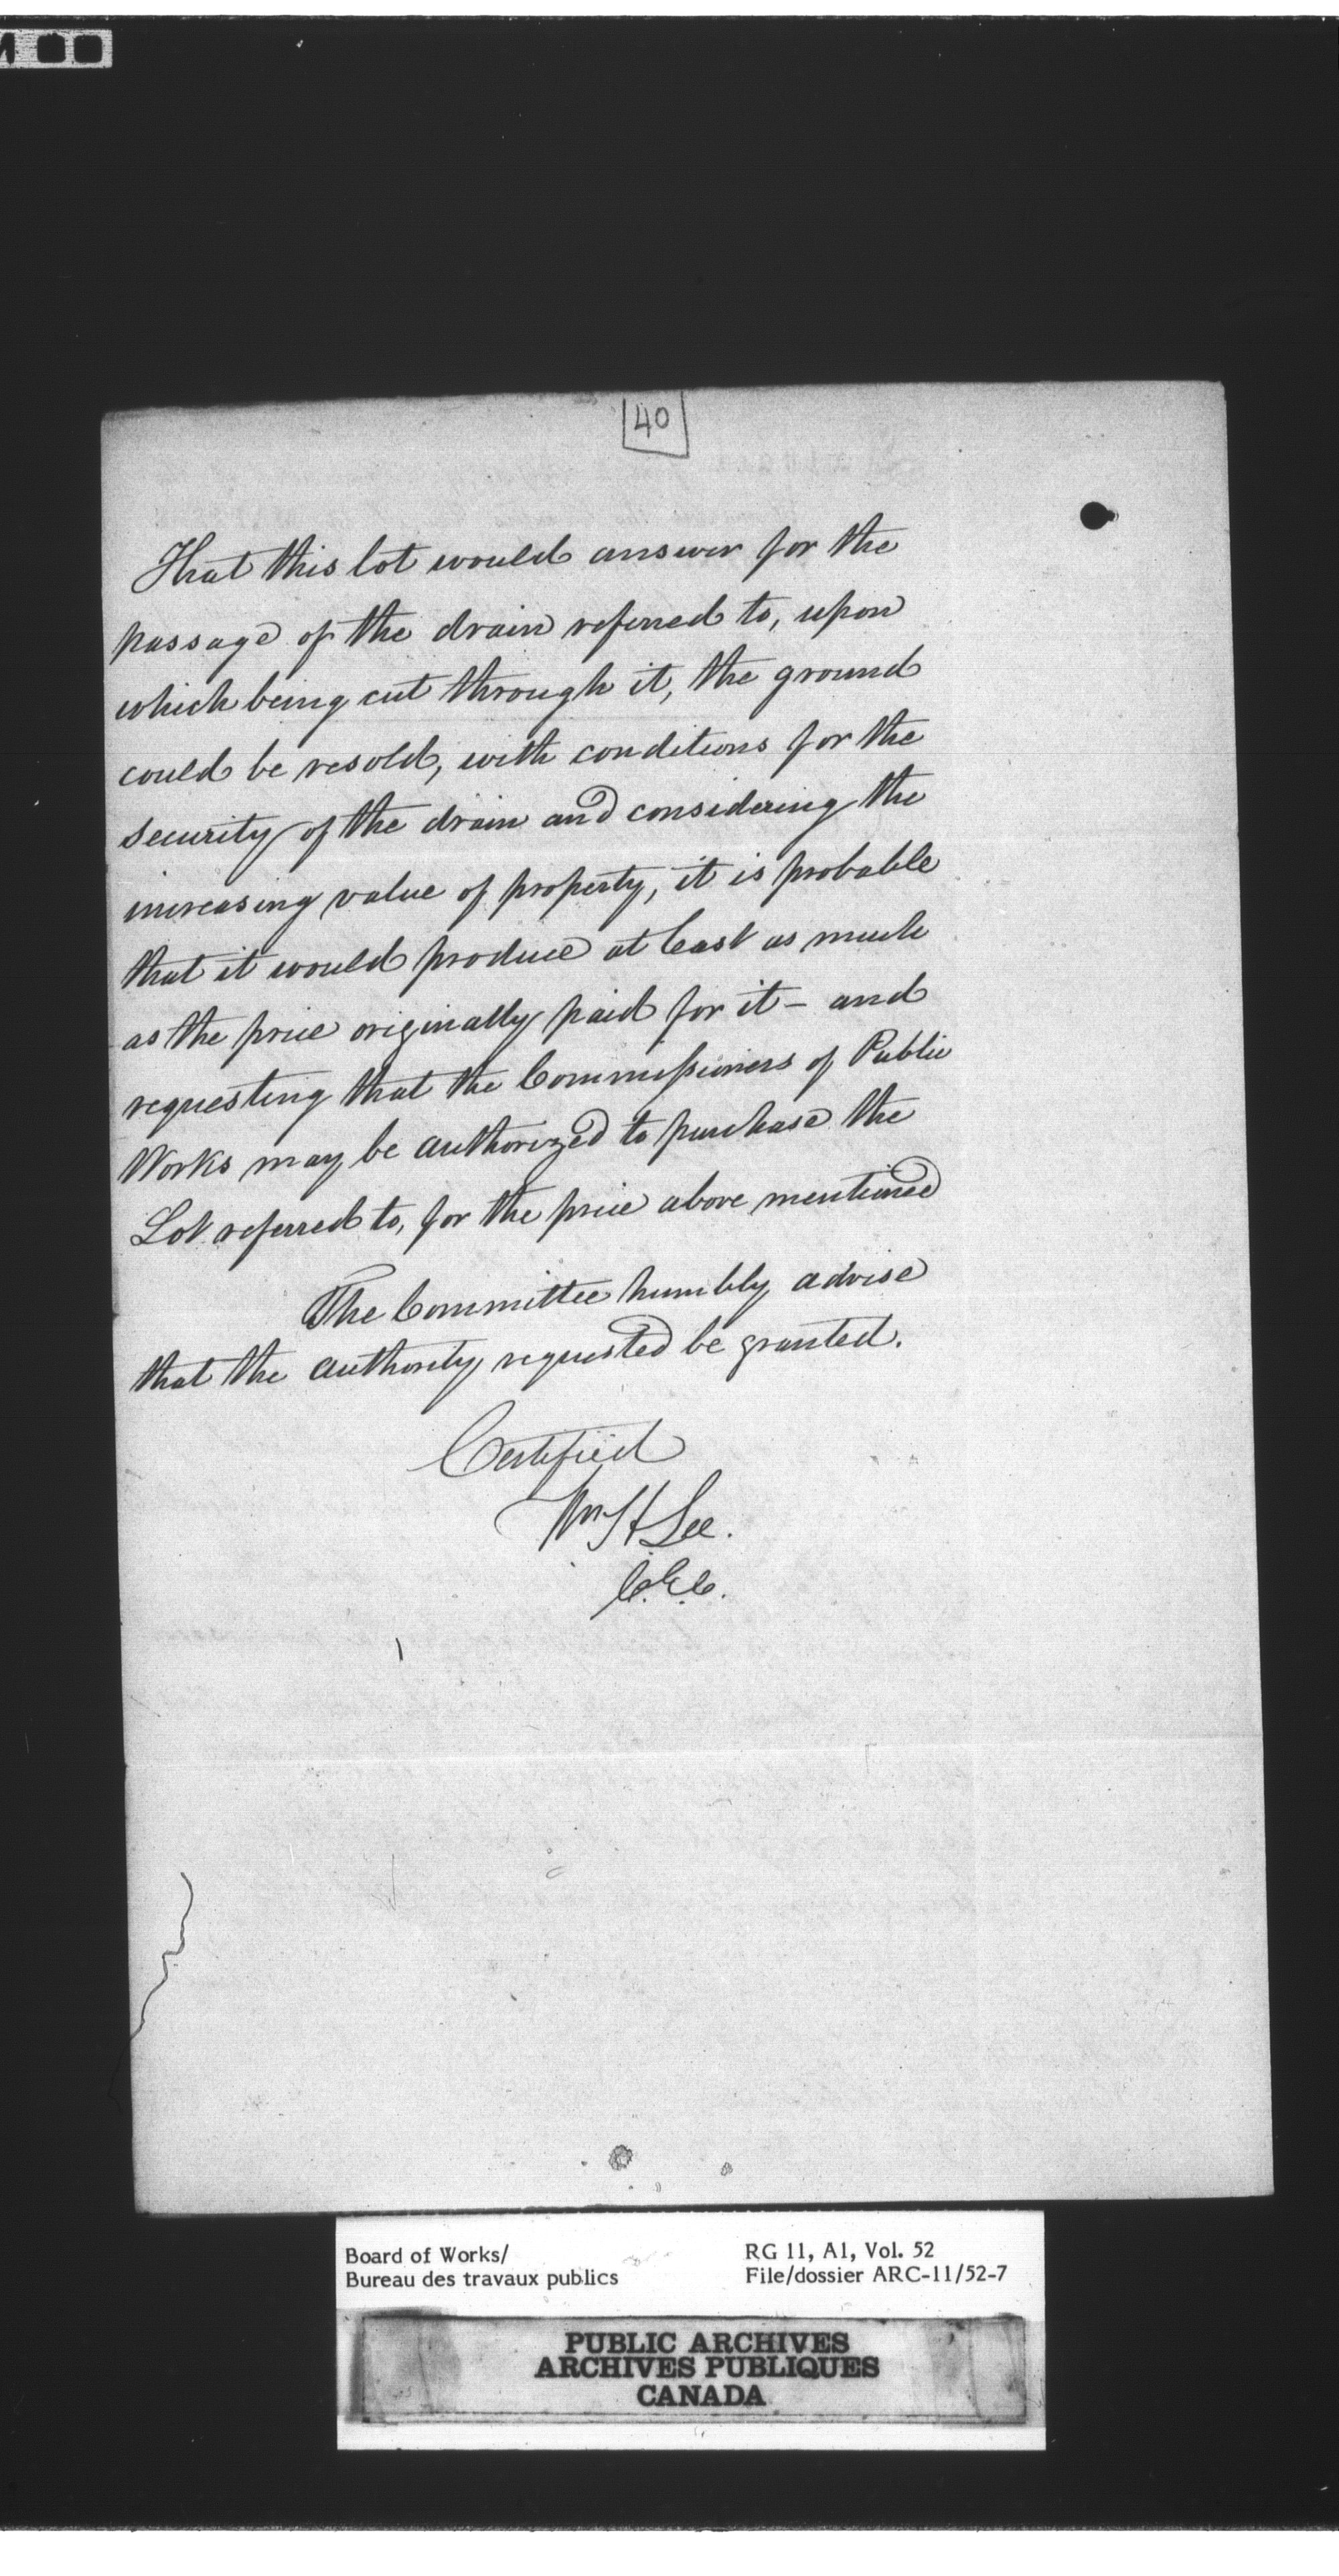 40
That this lot would answer for the
passage of the drain referred to, upon
which being cut through it, the ground
could be resold, with conditions for the
security of the drain and considering the
increasing value of property, it is probable
that it would produce at least as much
as the price originally paid for it – and
requesting that the Commissioners of Public
Works may be authorized to purchase the
Lot referred to, for the price above mentioned
The Committee humbly advise
that the authority requested be granted.
Certified
Wm H Lee.
C.E.C.
Board of Works/
Bureau des travaux publics
RG 11, A1, Vol. 52
File/dossier ARC-11/52-7
PUBLIC ARCHIVES
ARCHIVES PUBLIQUES
CANADA